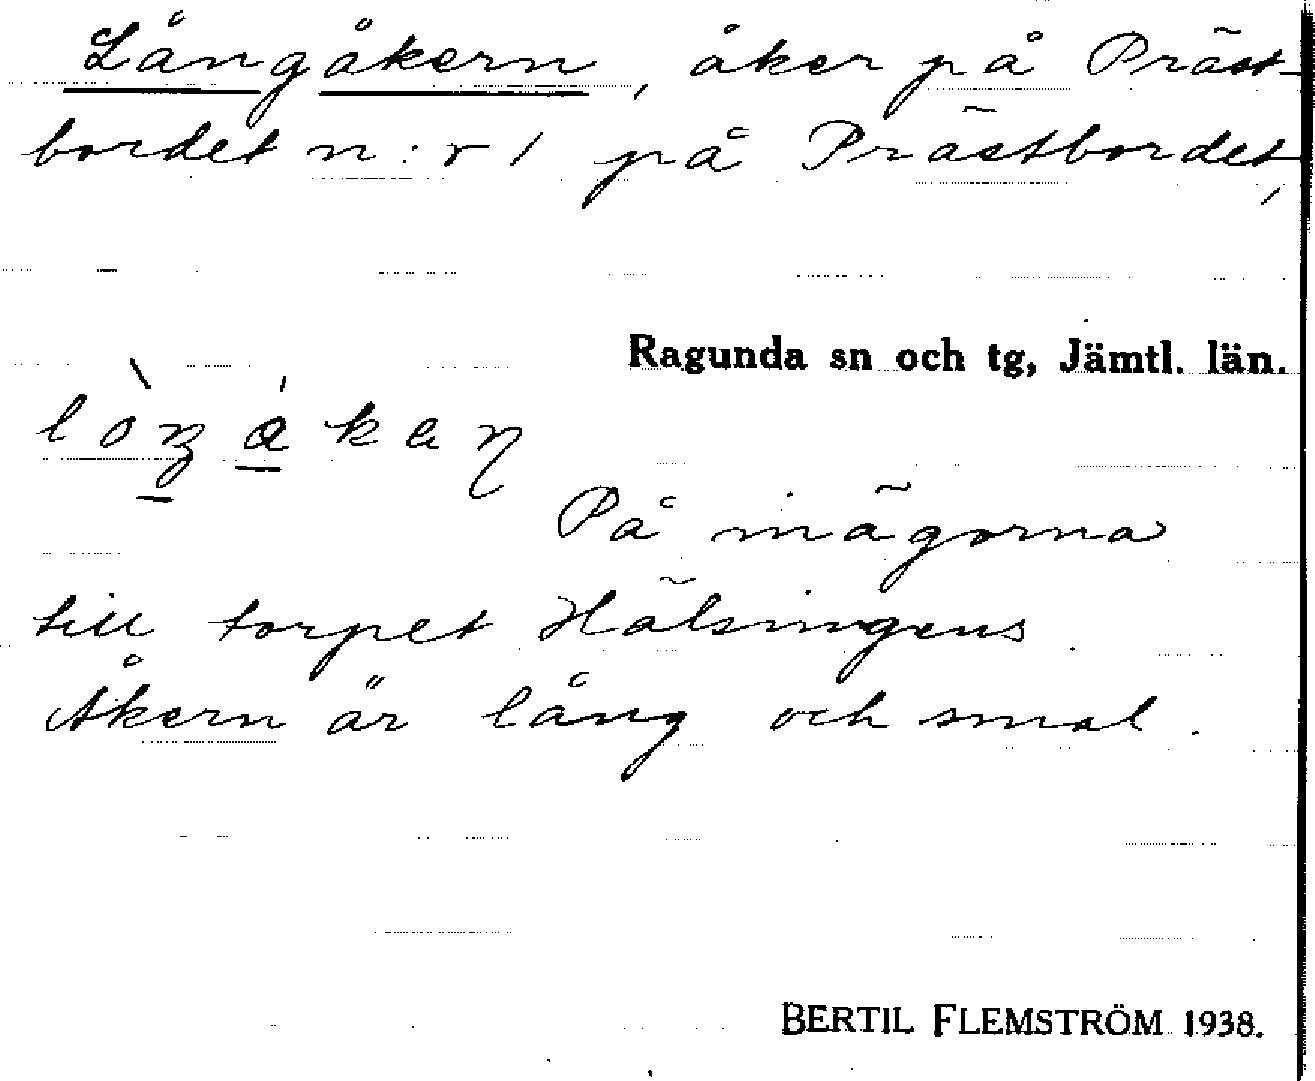 Långåkern, åker på Präst-
bordet n:r 1 på Prästbordet,
Ragunda sn och tg, Jämtl. län.
På inägorna
till torpet Hälsingens
Åkern är lång och smal.
BERTIL FLEMSTRÖM 1938.